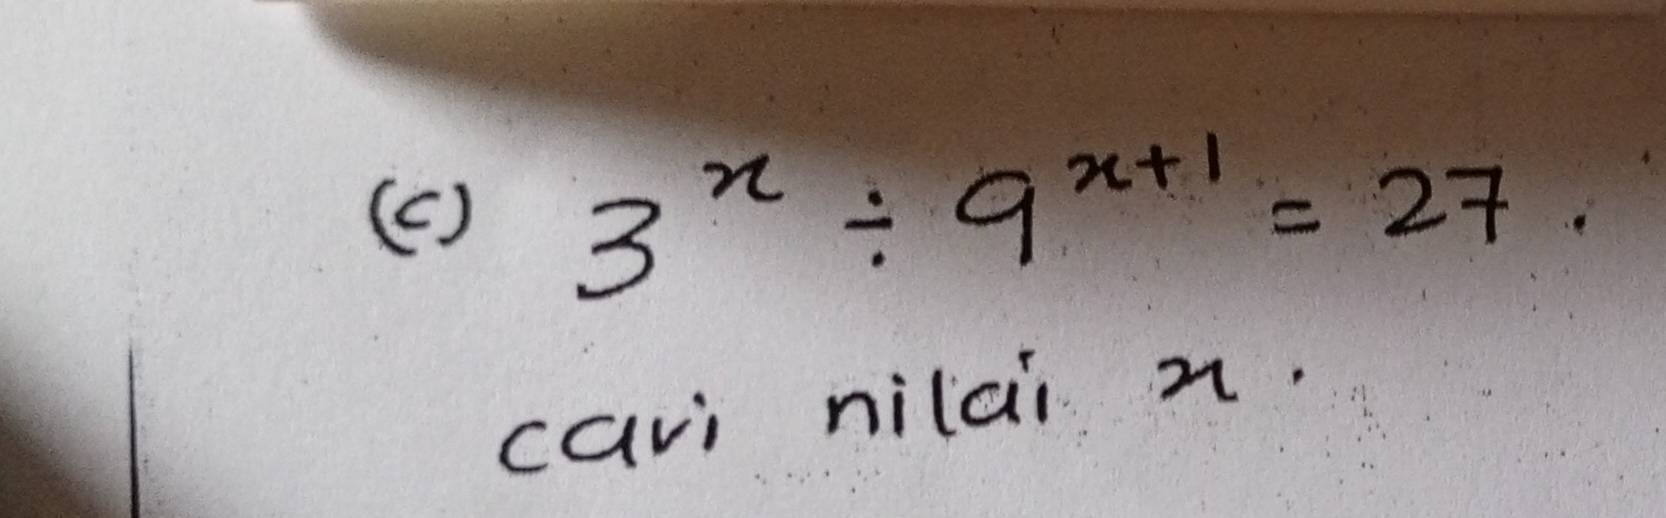 (c) 3^x ÷ 9^x+1 = 27.
cari nilai x.